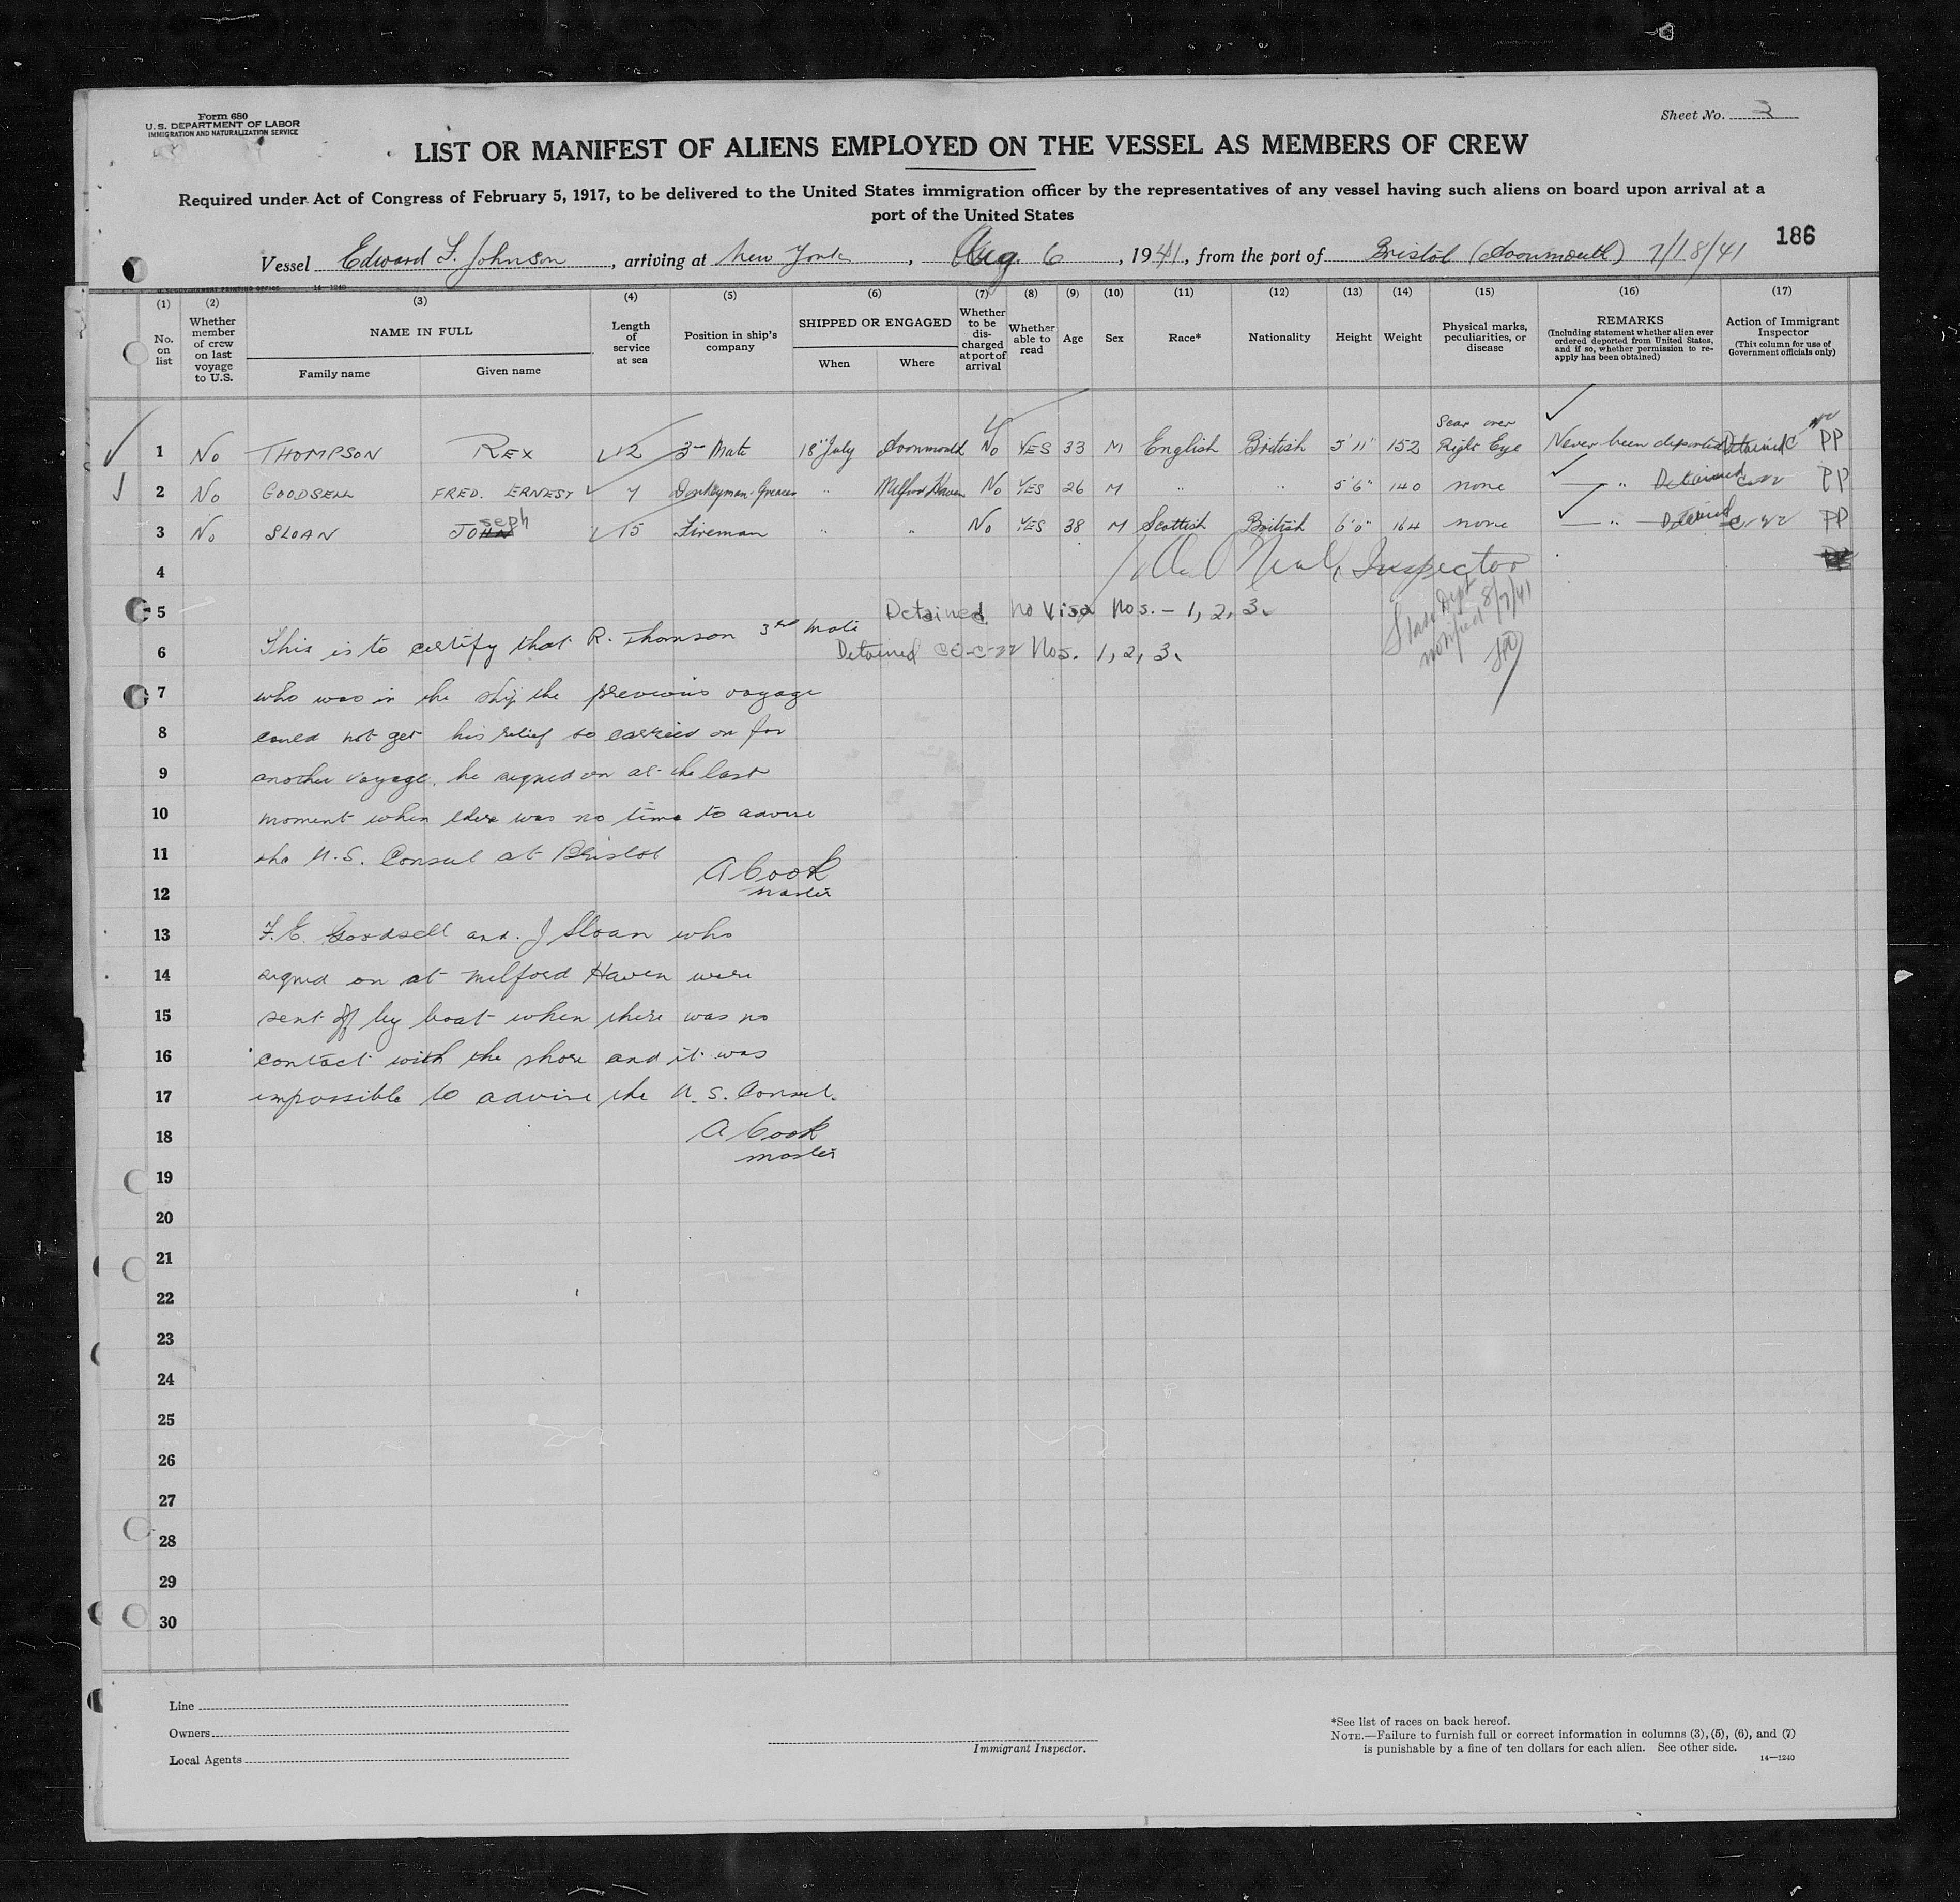 Form 680
U. S. DEPARTMENT OF LABOR
IMMIGRATION AND NATURALIZATION SERVICE
Sheet No. 3
LIST OR MANIFEST OF ALIENS EMPLOYED ON THE VESSEL AS MEMBERS OF CREW
Required under Act of Congress of February 5, 1917, to be delivered to the United States immigration officer by the representatives of any vessel having such aliens on board upon arrival at a
port of the United States
186
Vessel Edward F. Johnson, arriving at New York, Aug. 6, 1941, from the port of Bristol (Avonmouth) 7/18/41
U. S. GOVERNMENT PRINTING OFFICE 14—1240
(1) (2) (3) (4) (5) (6) (7) (8) (9) (10) (11) (12) (13) (14) (15) (16) (17)
No. on list
Whether member of crew on last voyage to U.S.
NAME IN FULL
Family name
Given name
Length of service at sea
Position in ship's company
SHIPPED OR ENGAGED
When
Where
Whether to be discharged at port of arrival
Whether able to read
Age
Sex
Race*
Nationality
Height
Weight
Physical marks, peculiarities, or disease
REMARKS
(Including statement whether alien ever ordered deported from United States, and if so, whether permission to reapply has been obtained)
Action of Immigrant Inspector
(This column for use of Government officials only)
1 No THOMPSON REX 12 3rd Mate 18" July Avonmouth No YES 33 M English British 5'11" 152 Scar over Right Eye Never been deported Detained PP
2 No GOODSELL FRED. ERNEST 7 Donkeyman-Greaser " Milford Haven No YES 26 M " " 5'6" 140 none — " Detained PP
3 No SLOAN JOHN seph 15 Fireman " " No YES 38 M Scottish British 6'0" 164 none — " Detained PP
4 Inspector
5 Detained no visa Nos. - 1, 2, 3.
State Dept notified 8/7/41
6 This is to certify that R. Thomson 3rd Mate
Detained Nos. 1, 2, 3.
7 who was in the ship the previous voyage
8 could not get his relief so carried on for
9 another voyage. he signed on at the last
10 moment when there was no time to advise
11 the U.S. Consul at Bristol
A Cook
12 master
13 F.E. Goodsell and J Sloan who
14 signed on at Milford Haven were
15 sent off by boat when there was no
16 contact with the shore and it was
17 impossible to advise the U.S. Consul.
18 A Cook
master
19
20
21
22
23
24
25
26
27
28
29
30
Line
Owners
Local Agents
Immigrant Inspector.
*See list of races on back hereof.
NOTE.—Failure to furnish full or correct information in columns (3), (5), (6), and (7)
is punishable by a fine of ten dollars for each alien. See other side.
14—1240